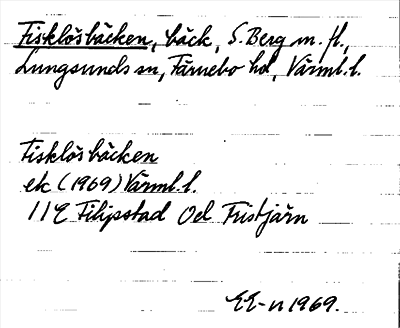 Fisklösbäcken, bäck, S. Berg m. fl.,
Lungsunds sn, Färnebo hd, Värml. l.
Fisklösbäcken
ek (1969) Värml. l.
11E Filipstad Od Fristjärn
EE-n 1969.